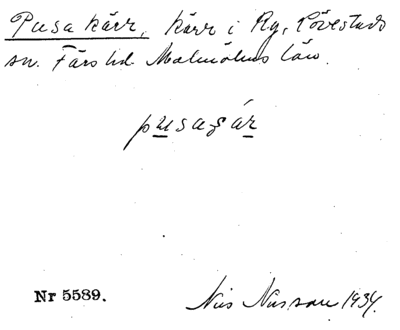 Pusa kärr, Kärr i Ry, Lövestads
sn. Färs hd. Malmöhus län.
pusazár
Nr 5589.
Nils Nilsson 1934.